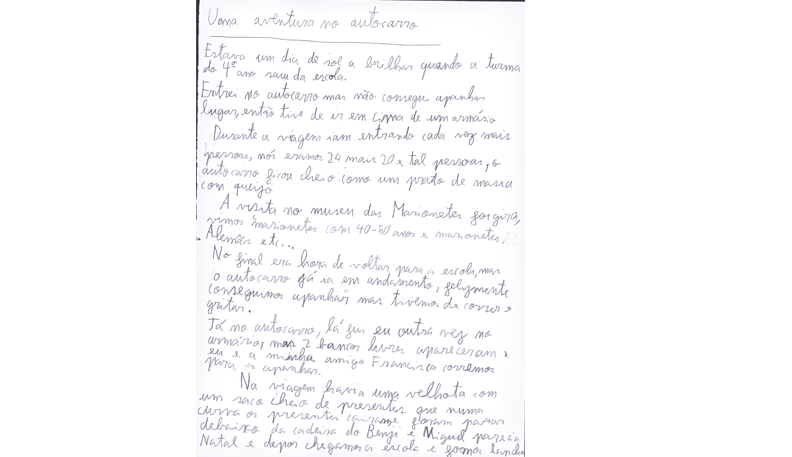 Uma aventura no autocarro
Estava um dia de sol a brilhar quando a turma
do 4º ano saiu da escola.
Entrei no autocarro mas não consegui apanhar
lugar, então tive de ir em cima de um armário.
Durante a viagem iam entrando cada vez mais
pessoas, nós eramos 24 mais 20 e tal pessoas, o
autocarro ficou cheio como um prato de massa
com queijo
A visita no museu das Marionetes foi gira,
vimos marionetes com 40-50 anos e marionetes,
Alemãs etc...
No final era hora de voltar para a escola, mas
o autocarro já ia em andamento, felizmente
conseguimos apanhar mas tivemos de correr e
gritar.
Já no autocarro, lá fui eu outra vez no
armário, mas 2 bancos livres apareceram e
eu e a minha amiga Francisca corremos
para os apanhar.
Na viagem havia uma velhota com
um saco cheio de presentes que numa
curva os presentes cairam e foram parar
debaixo da cadeira do Benji e Miguel parecia
Natal e depois chegamos a escola e fomos lanchar